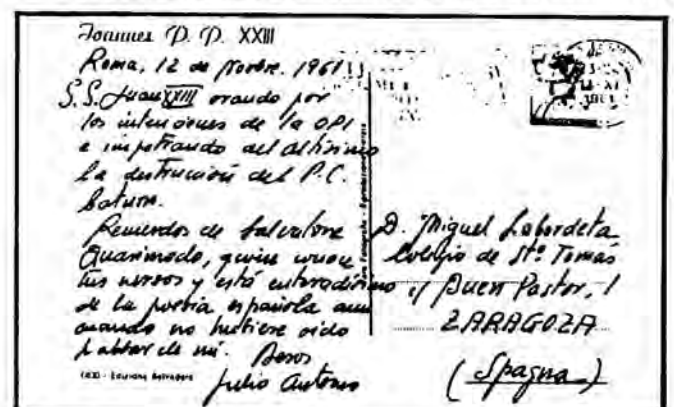 Joannes P. P. XXIII
Roma, 12 de Novbre. 1961
S. S. Juan XXIII orando por
las intenciones de la OPI
e impetrando del Altísimo
la destrucción del P.C.
Saturn.
Recuerdos de Salvatore
Quasimodo, quien conoce
tus versos y está enteradísimo
de la poesía española aun
cuando no hubiese oído
hablar de mí. Besos
Julio Antonio
D. Miguel Labordeta
Colegio de Stº Tomás
c/ Buen Pastor, 1
ZARAGOZA
(Spagna)